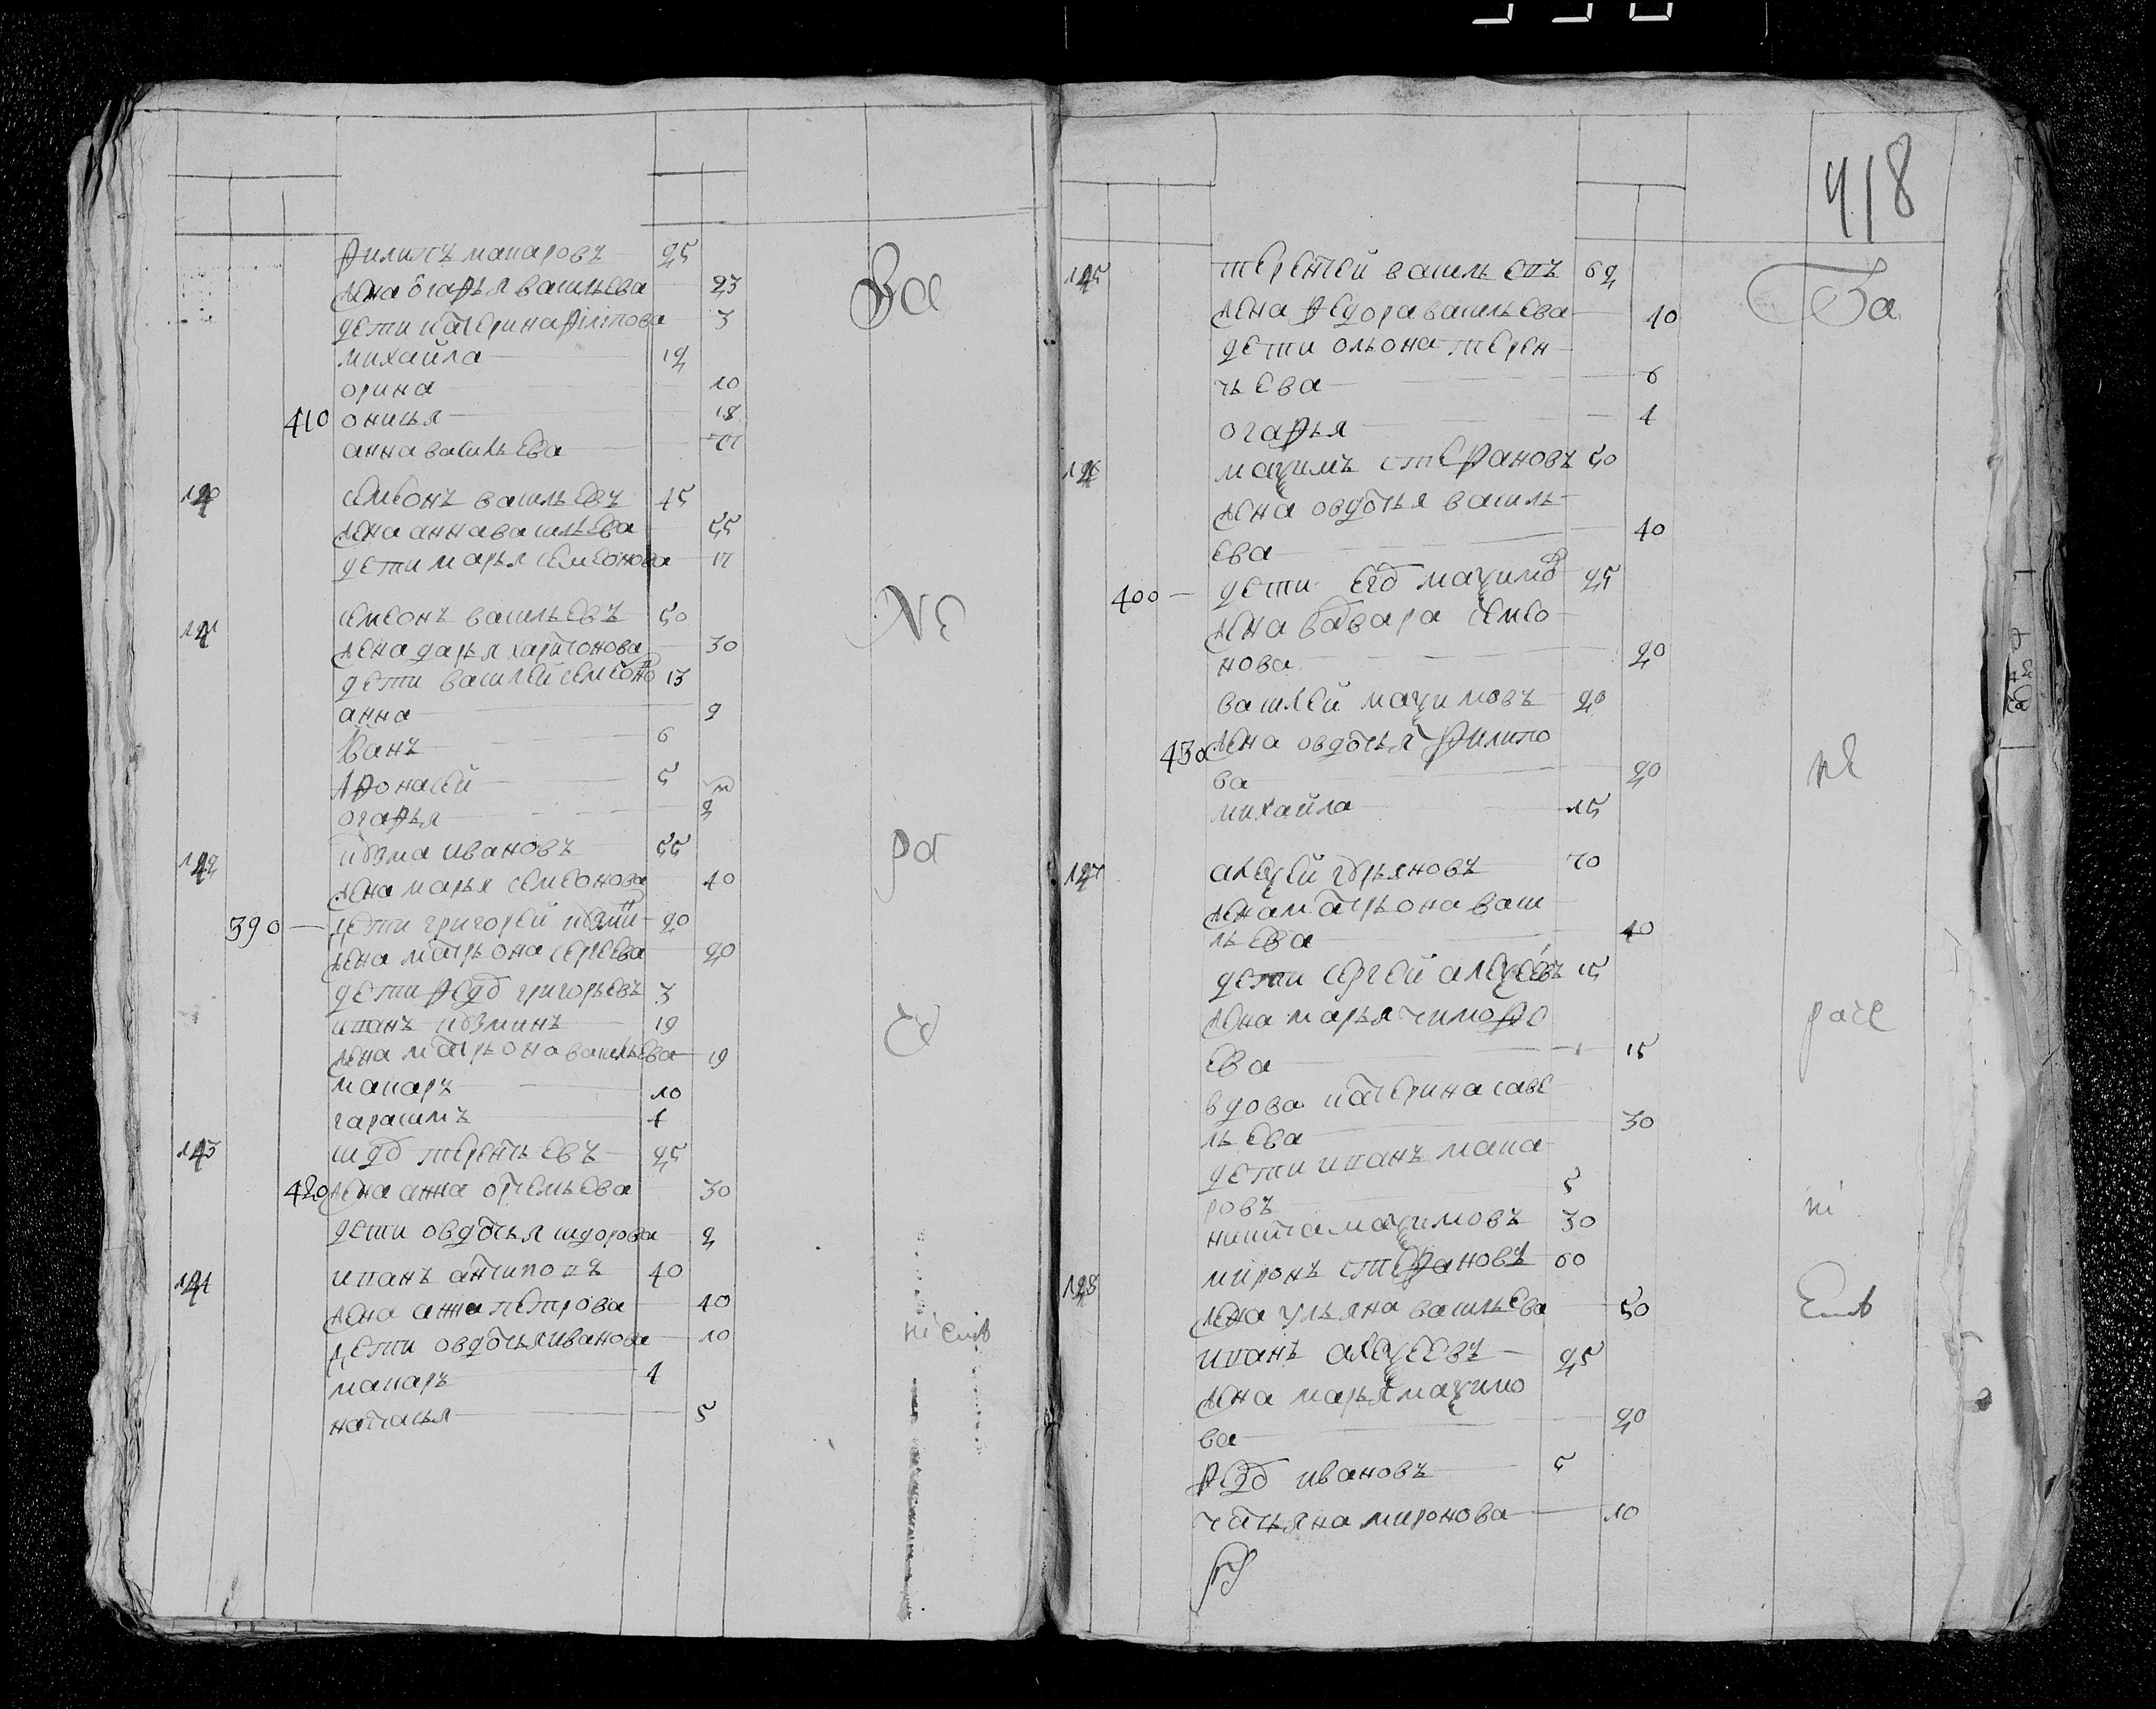 филипъ макаровъ 25
жена огафья васильева 23
дети катерина филипова 3
михайла 12
орина 10
410 онисья 18
анна васильева
120 семионъ васильевъ 45
жена анна васильева 55
дети марья семионова 17
121 семионъ васильевъ 50
жена дарья харитонова 30
дети василей семионо 13
анна 9
иванъ 6
афонасей 5
огафья 2
122 кузма ивановъ 55
жена марья семионова 40
390 дети григорей кузмин 20
жена матрьона сергеева 20
дети федо григорьевъ 3
иванъ кузминъ 19
жена матрьона васильева 19
макаръ 10
гарасимъ 1
123 сидо терентьевъ 25
420 жена анна ортемьева 30
дети овдотья сидорова 2
124 иванъ антиповъ 40
жена анна петрова 40
дети овдотья иванова 10
макаръ 1
наталья 5
Ва
не
ро
418
125 терентей васильевъ 62
жена федора васильева 40
дети ольона терен
тьева 6
огафья 1
126 маѯимъ стефановъ 50
жена овдотья василь
ева 40
400 дети его маѯимо 25
жена варвара семио
нова 20
василей маѯимовъ 20
430 жена овдотья филипо
ва 20
михайла 15
127 алеѯей гурьяновъ 70
жена матрьона васи
льева 40
дети сергей алеѯеевъ 15
жена марья тимофе
ева 15
вдова катерина саве
льева 30
дети иванъ мака
ровъ 5
никита маѯимовъ 30
128 миронъ стефановъ 60
жена ульяна васильева 50
иванъ алеѯеевъ 25
жена марья маѯимо
ва 20
федо ивановъ 5
татьяна миронова 10